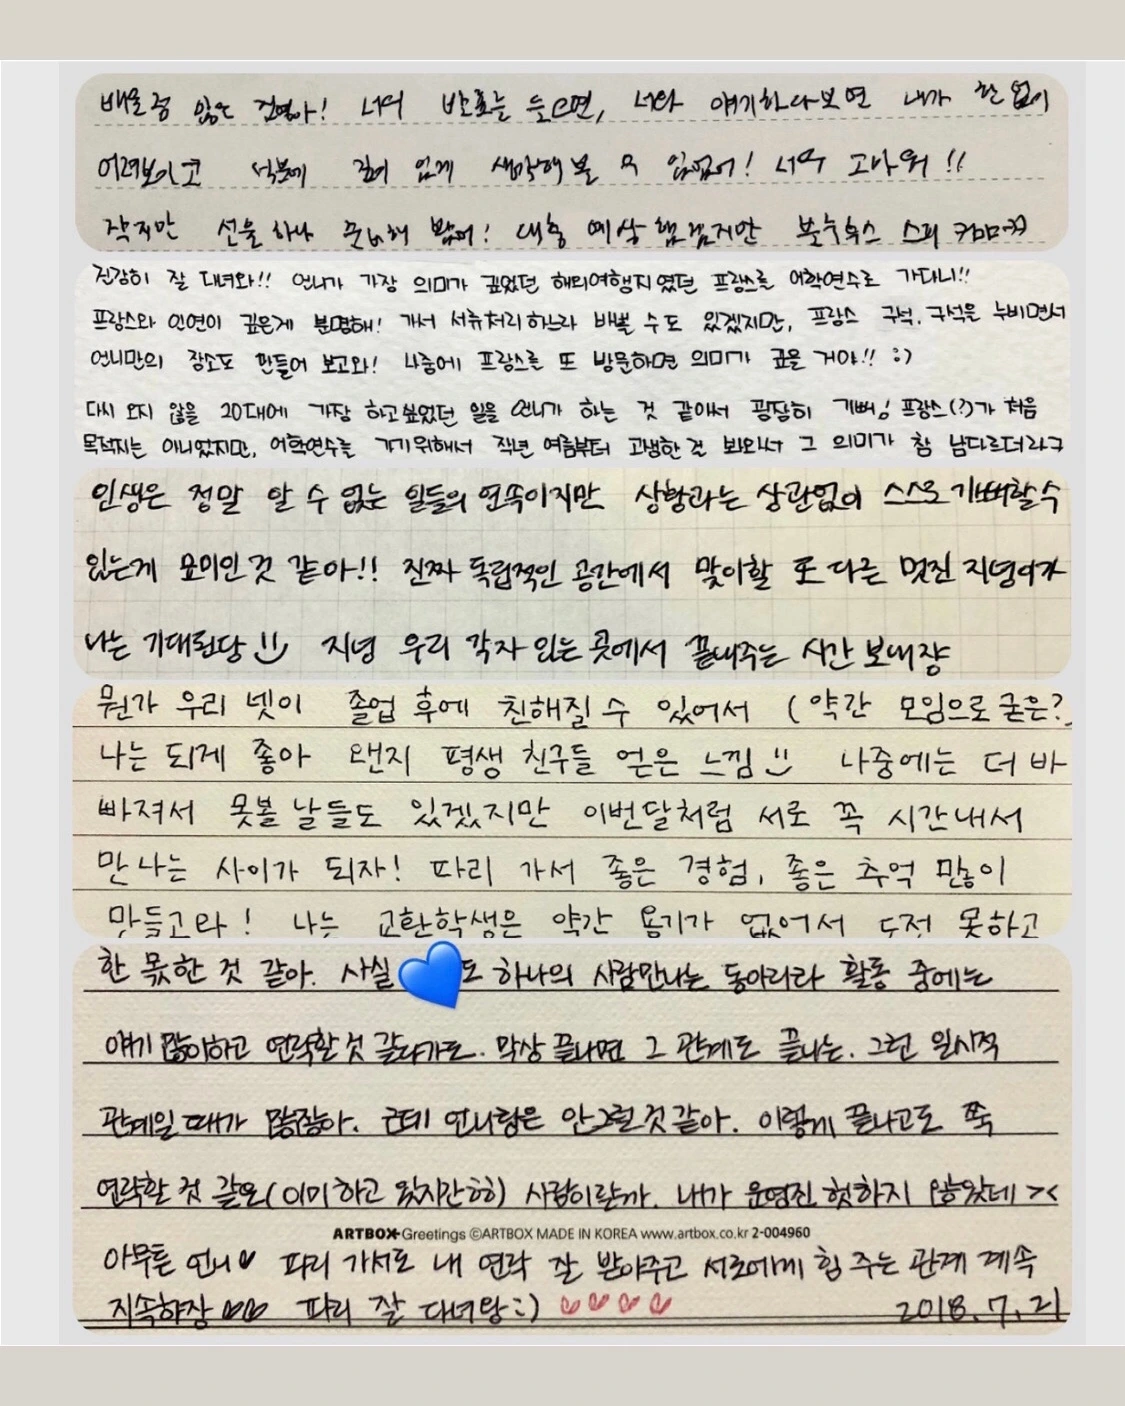 배울점 많은 지영아! 너의 발표를 들으면, 너와 얘기하다보면 내가 한없이
어려보이고 덕분에 깊이 있게 생각해 볼 수 있었어! 너무 고마워!!
작지만 선물 하나 준비해 봤어! 대충 예상했겠지만
진강히 잘 다녀와!! 언니가 가장 의미가 깊었던 해외여행지였던 프랑스를 어학연수로 가다니!!
프랑스와 인연이 깊은게 분명해! 가서 서류처리하느라 바쁠 수도 있겠지만, 프랑스 구석, 구석을 누비면서
언니만의 장소도 만들어 보고와! 나중에 프랑스를 또 방문하면 의미가 깊을 거야!! :)
다시 오지 않을 20대에 가장 하고싶었던 일을 언니가 하는 것 같아서 굉장히 기뻐! 프랑스(?)가 처음
목적지는 아니었지만, 어학연수를 가기위해서 작년 여름부터 고생한 것 봐와서 그 의미가 참 남다르더라구
인생은 정말 알 수 없는 일들의 연속이지만 상황과는 상관없이 스스로 기뻐할 수
있는게 묘미인 것 같아!! 진짜 독립적인 공간에서 맞이할 또 다른 멋진 지녕이가
나는 기대된당 지녕 우리 각자 있는 곳에서 끝내주는 시간 보내쟝
뭔가 우리 넷이 졸업 후에 친해질 수 있어서 (약간 모임으로 굳은?)
나는 되게 좋아 왠지 평생 친구들 얻은 느낌 나중에는 더 바
빠져서 못볼 날들도 있겠지만 이번달처럼 서로 꼭 시간내서
만나는 사이가 되자! 파리 가서 좋은 경험, 좋은 추억 많이
만들고와! 나는 교환학생은 약간 용기가 없어서 도전 못하고
한 몫한 것 같아. 사실 💙도 하나의 사람만나는 동아리라 활동 중에는
얘기 많이하고 연락할것 같다가도. 막상 끝나면 그 관계도 끝나는. 그런 일시적
관계일 때가 많잖아. 근데 언니랑은 안그럴것같아. 이렇게 끝나고도 쭉
연락할 것 같은(이미 하고 있지만ㅎㅎ) 사람이랄까. 내가 운영진 헛하지 않았네 ><
ARTBOX Greetings ©ARTBOX MADE IN KOREA www.artbox.co.kr 2-004960
아무튼 언니♥ 파리 가서도 내 연락 잘 받아주고 서로에게 힘 주는 관계 계속
지속하쟝 ♡♡ 파리 잘 다녀왕 :) ♡♡♡♡ 2018.7.21